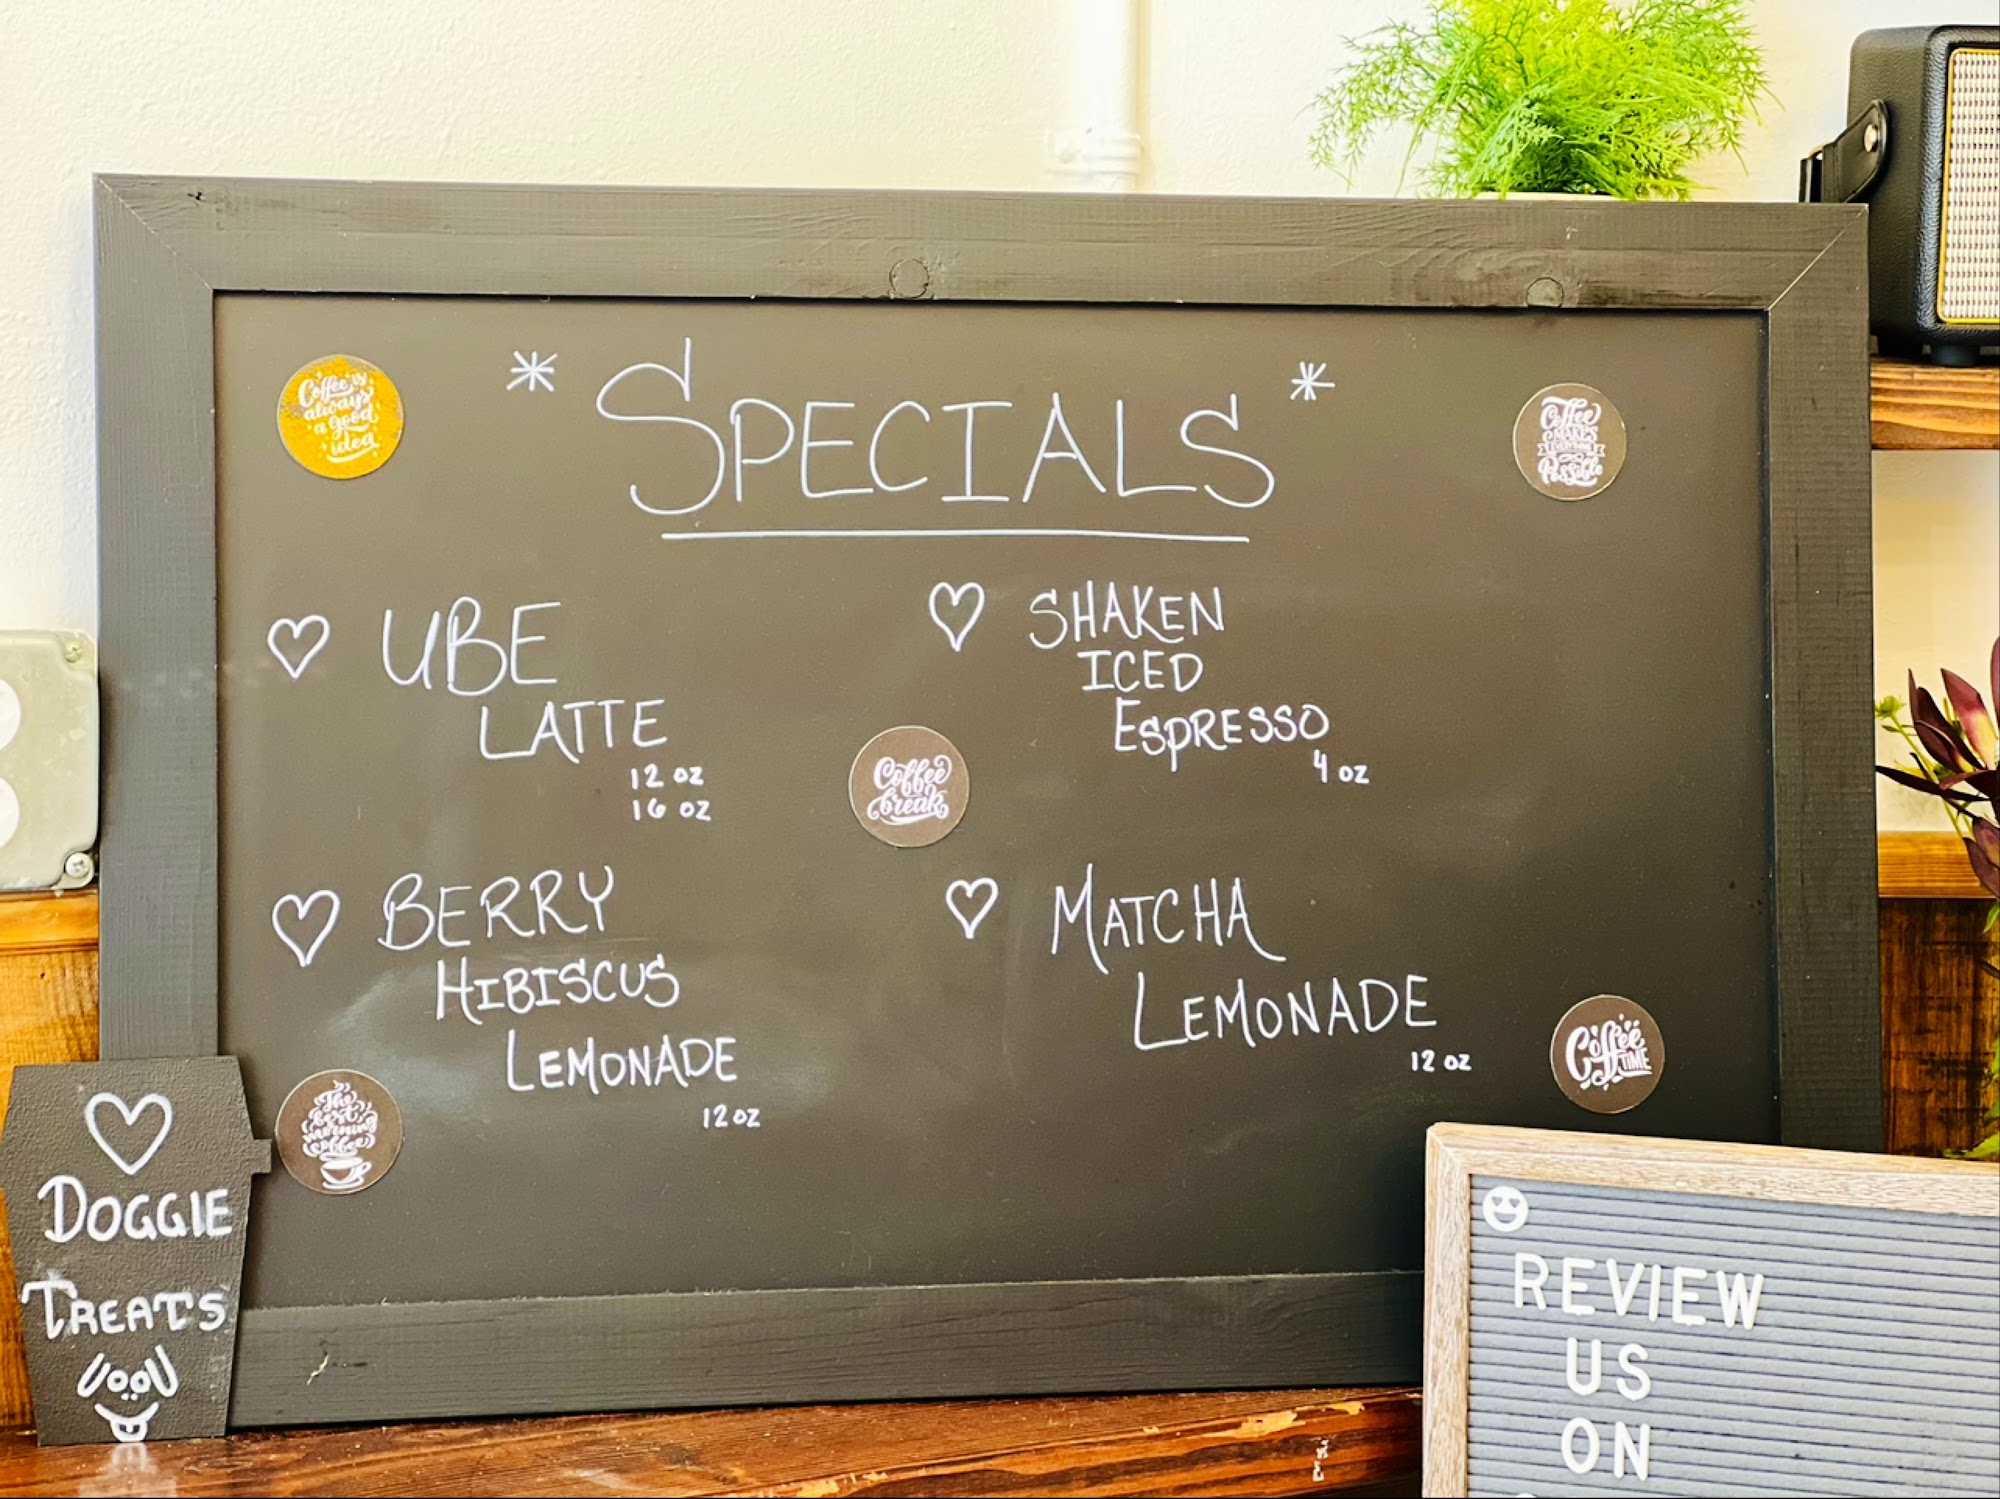 * SPECIALS *
Coffee is
always
a good
idea
Coffee
MAKES
EVERYTHING
Possible
♡ UBE
LATTE
12 oz
16 oz
♡ SHAKEN
ICED
ESPRESSO
4 oz
Coffee
break
♡ BERRY
HIBISCUS
LEMONADE
12 oz
♡ MATCHA
LEMONADE
12 oz
The
best
morning
coffee
Coffee
TIME
♡
DOGGIE
TREATS
REVIEW
US
ON